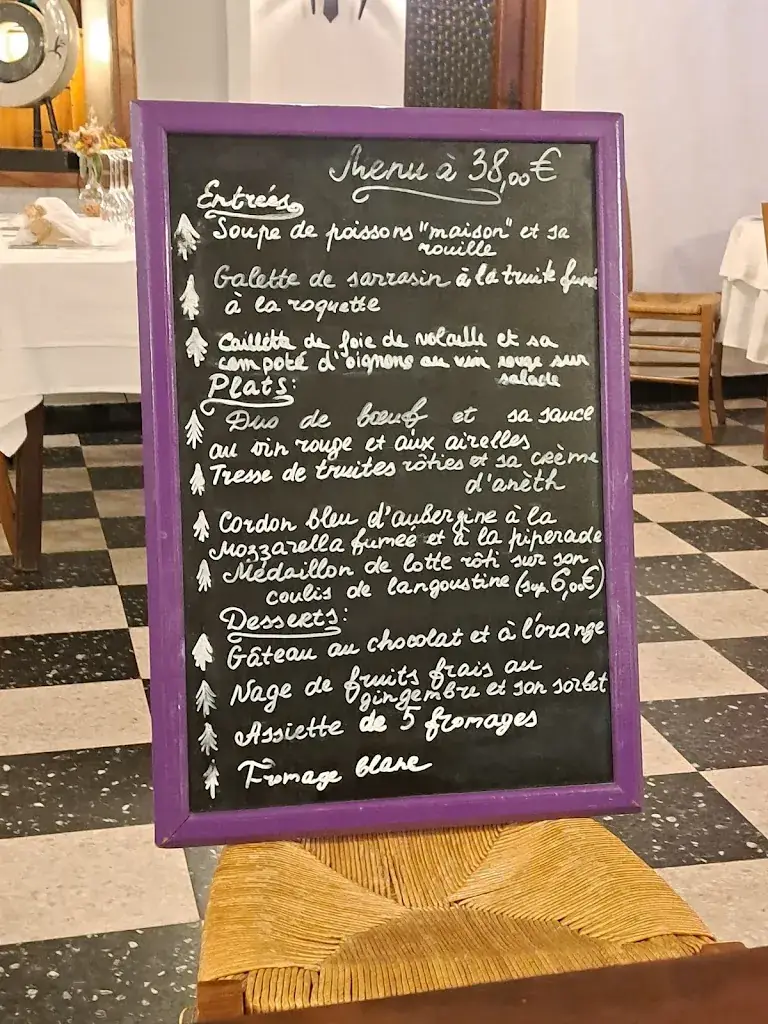 Menu à 38,00€
Entrées
Soupe de poissons "maison" et sa
rouille
Galette de sarrasin à la truite fumé
à la roquette
Caillette de foie de volaille et sa
compoté d'oignons au vin rouge sur
salade
Plats:
Duo de bœuf et sa sauce
au vin rouge et aux airelles
Tresse de truites rôties et sa crème
d'anèth
Cordon bleu d'aubergine à la
Mozzarella fumée et à la piperade
Médaillon de lotte rôti sur son
coulis de langoustine (sup. 6,00€)
Desserts:
Gâteau au chocolat et à l'orange
Nage de fruits frais au
gingembre et son sorbet
Assiette de 5 fromages
Fromage blanc